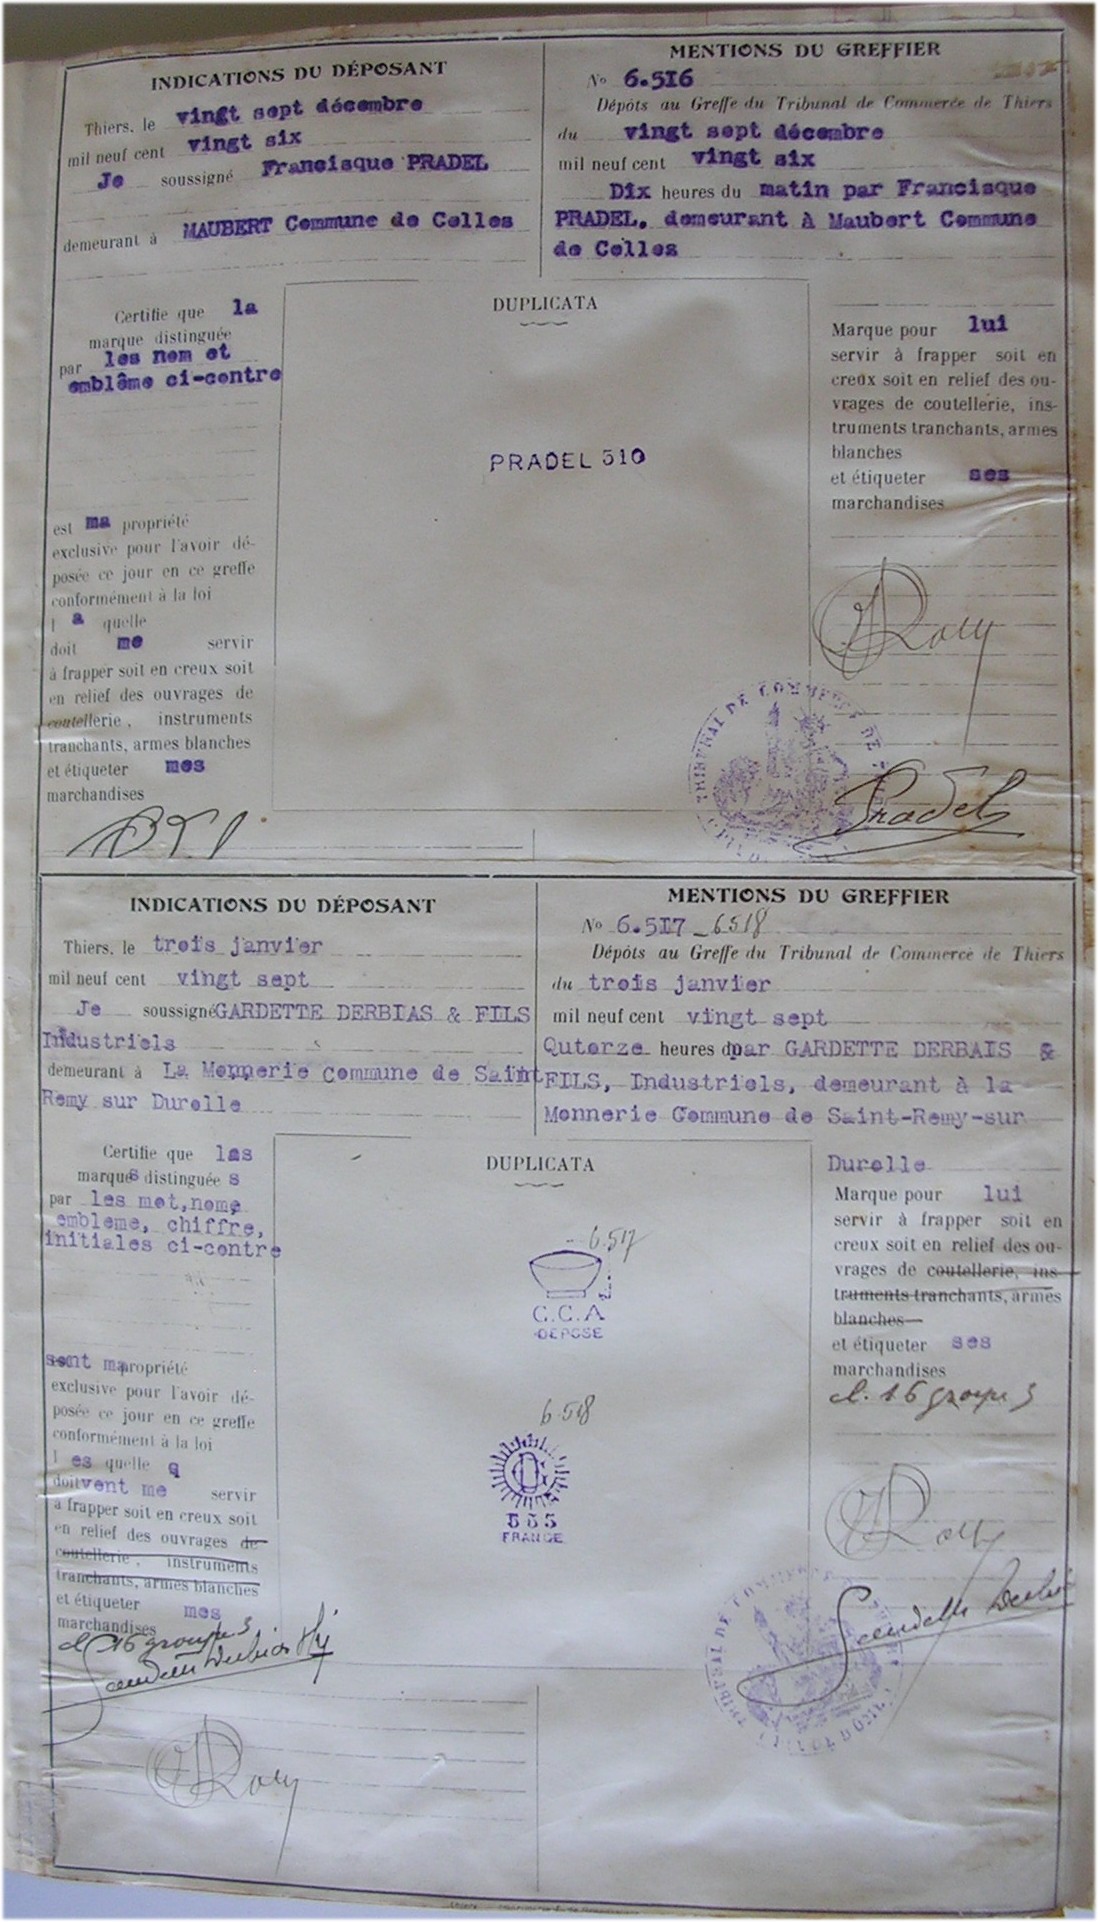 INDICATIONS DU DÉPOSANT
Thiers, le vingt sept décembre
mil neuf cent vingt six
Je soussigné Francisque PRADEL
demeurant à MAUBERT Commune de Celles
MENTIONS DU GREFFIER
No 6.516
Dépôts au Greffe du Tribunal de Commerce de Thiers
du vingt sept décembre
mil neuf cent vingt six
Dix heures du matin par Francisque
PRADEL, demeurant à Maubert Commune
de Celles
Certifie que la
marque distinguée
par les nom et
emblême ci-contre
est ma propriété
exclusive pour l'avoir dé-
posée ce jour en ce greffe
conformément à la loi
l a quelle
doit me servir
à frapper soit en creux soit
en relief des ouvrages de
coutellerie, instruments
tranchants, armes blanches
et étiqueter mes
marchandises
DUPLICATA
PRADEL 510
Marque pour lui
servir à frapper soit en
creux soit en relief des ou-
vrages de coutellerie, ins-
truments tranchants, armes
blanches
et étiqueter ses
marchandises
TRIBUNAL DE COMMERCE DE
Pradel
INDICATIONS DU DÉPOSANT
Thiers, le trois janvier
mil neuf cent vingt sept
Je soussigné GARDETTE DERBIAS & FILS
Industriels
demeurant à La Monnerie Commune de Saint
Remy sur Durolle
MENTIONS DU GREFFIER
No 6.517 - 6518
Dépôts au Greffe du Tribunal de Commerce de Thiers
du trois janvier
mil neuf cent vingt sept
Qutorze heures du par GARDETTE DERBAIS &
FILS, Industriels, demeurant à la
Monnerie Commune de Saint-Remy-sur
Durolle
Certifie que les
marques distinguée s
par les mot, noms
embleme, chiffre,
initiales ci-contre
sont ma propriété
exclusive pour l'avoir dé-
posée ce jour en ce greffe
conformément à la loi
l es quelle
doitvent me servir
à frapper soit en creux soit
en relief des ouvrages de
coutellerie, instruments
tranchants, armes blanches
et étiqueter mes
marchandises
cl. 16 groupe 3
DUPLICATA
6.517
C.C.A
DEPOSE
6.518
555
FRANCE
Marque pour lui
servir à frapper soit en
creux soit en relief des ou-
vrages de coutellerie, ins-
truments tranchants, armes
blanches
et étiqueter ses
marchandises
cl. 16 groupe 3